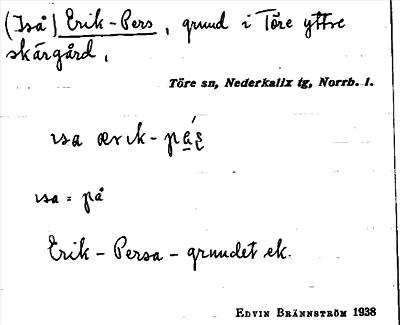 (Iså) Erik-Pers, grund i Töre yttre
skärgård,
Töre sn, Nederkalix tg, Norrb. l.
ısa ærık-pa̲ś̲
ısa = på
Erik-Persa-grundet ek.
EDVIN BRÄNNSTRÖM 1938